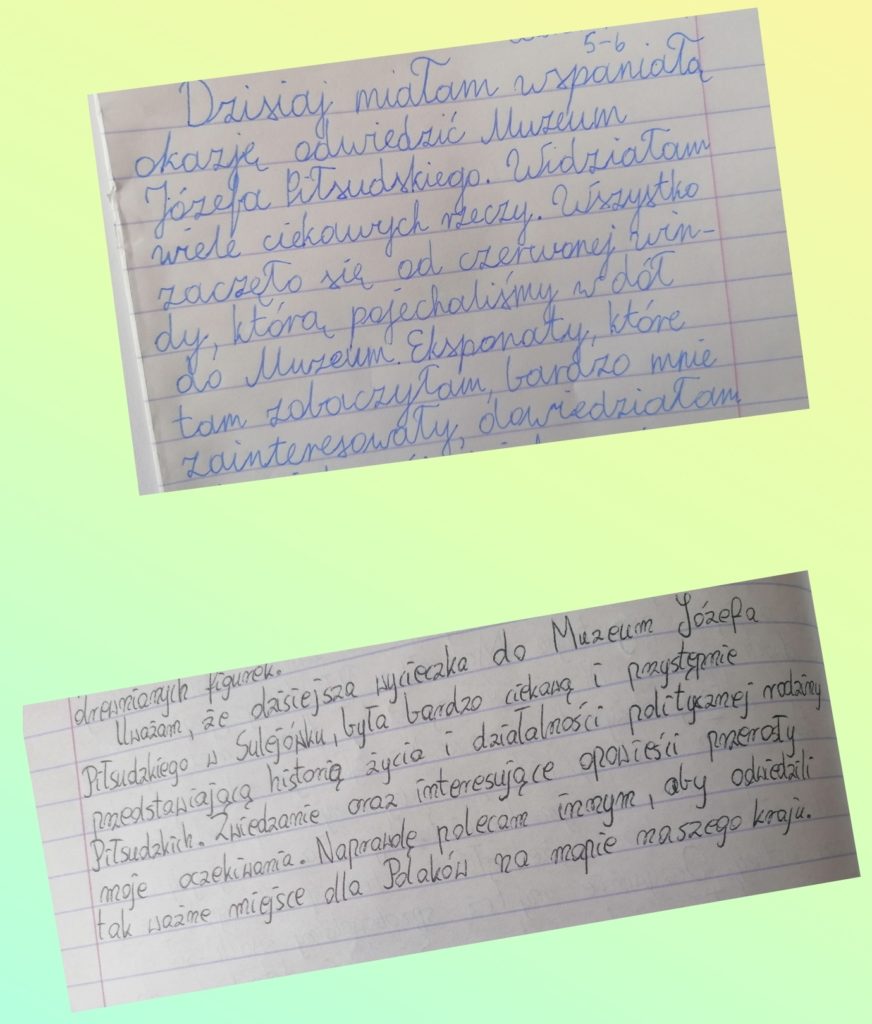 5-6
Dzisiaj miałam wspaniałą
okazję odwiedzić Muzeum
Józefa Piłsudskiego. Widziałam
wiele ciekawych rzeczy. Wszystko
zaczęło się od czerwonej win-
dy, którą pojechaliśmy w dół
do Muzeum. Eksponaty, które
tam zobaczyłam, bardzo mnie
zainteresowały, dowiedziałam
drewnianych figurek.
Uważam, że dzisiejsza wycieczka do Muzeum Józefa
Piłsudzkiego w Sulejówku, była bardzo ciekawą i przystępnie
przedstawiającą historię życia i działalności politycznej rodziny
Piłsudzkich. Zwiedzanie oraz interesujące opowieści przerosły
moje oczekiwania. Naprawdę polecam innym, aby odwiedzili
tak ważne miejsce dla Polaków na mapie naszego kraju.